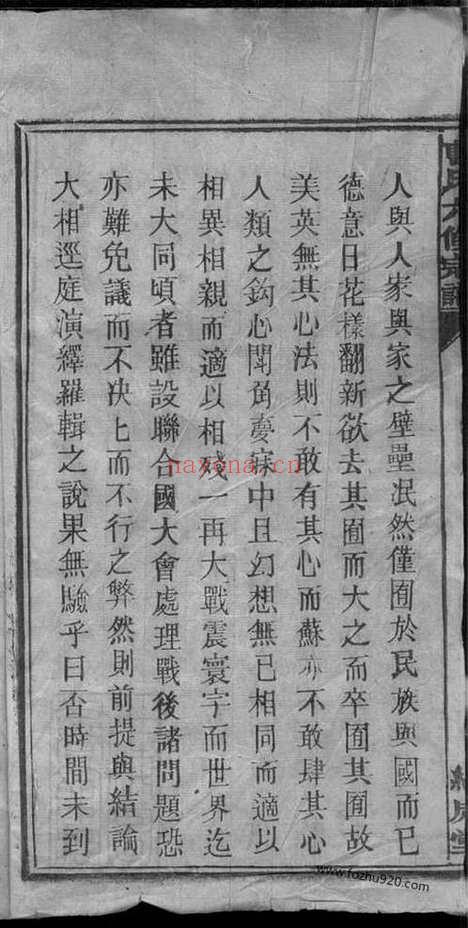 人與人家與家之壁壘泯然僅囿於民族與國而已
德意日花樣翻新欲去其囿而大之而卒囿其囿故
美英無其心法則不敢有其心而蘇亦不敢肆其心
人類之鈎心鬭角夢寐中且幻想無已相同而適以
相異相親而適以相殘一再大戰震寰宇而世界迄
未大同頃者雖設聯合國大會處理戰後諸問題恐
亦難免議而不决匕而不行之弊然則前提與結論
大相逕庭演繹羅輯之說果無驗乎曰否時間未到
haxona.cn
www.fozhu920.com